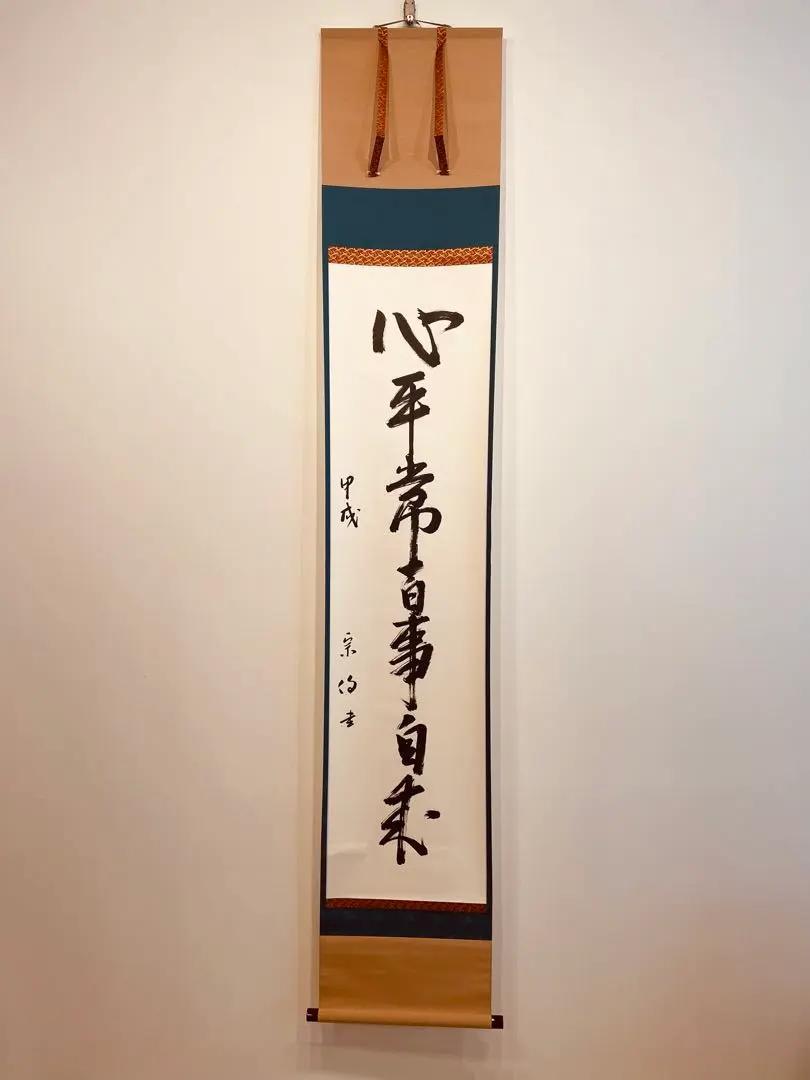 心平常百事自
甲戌
宗 書